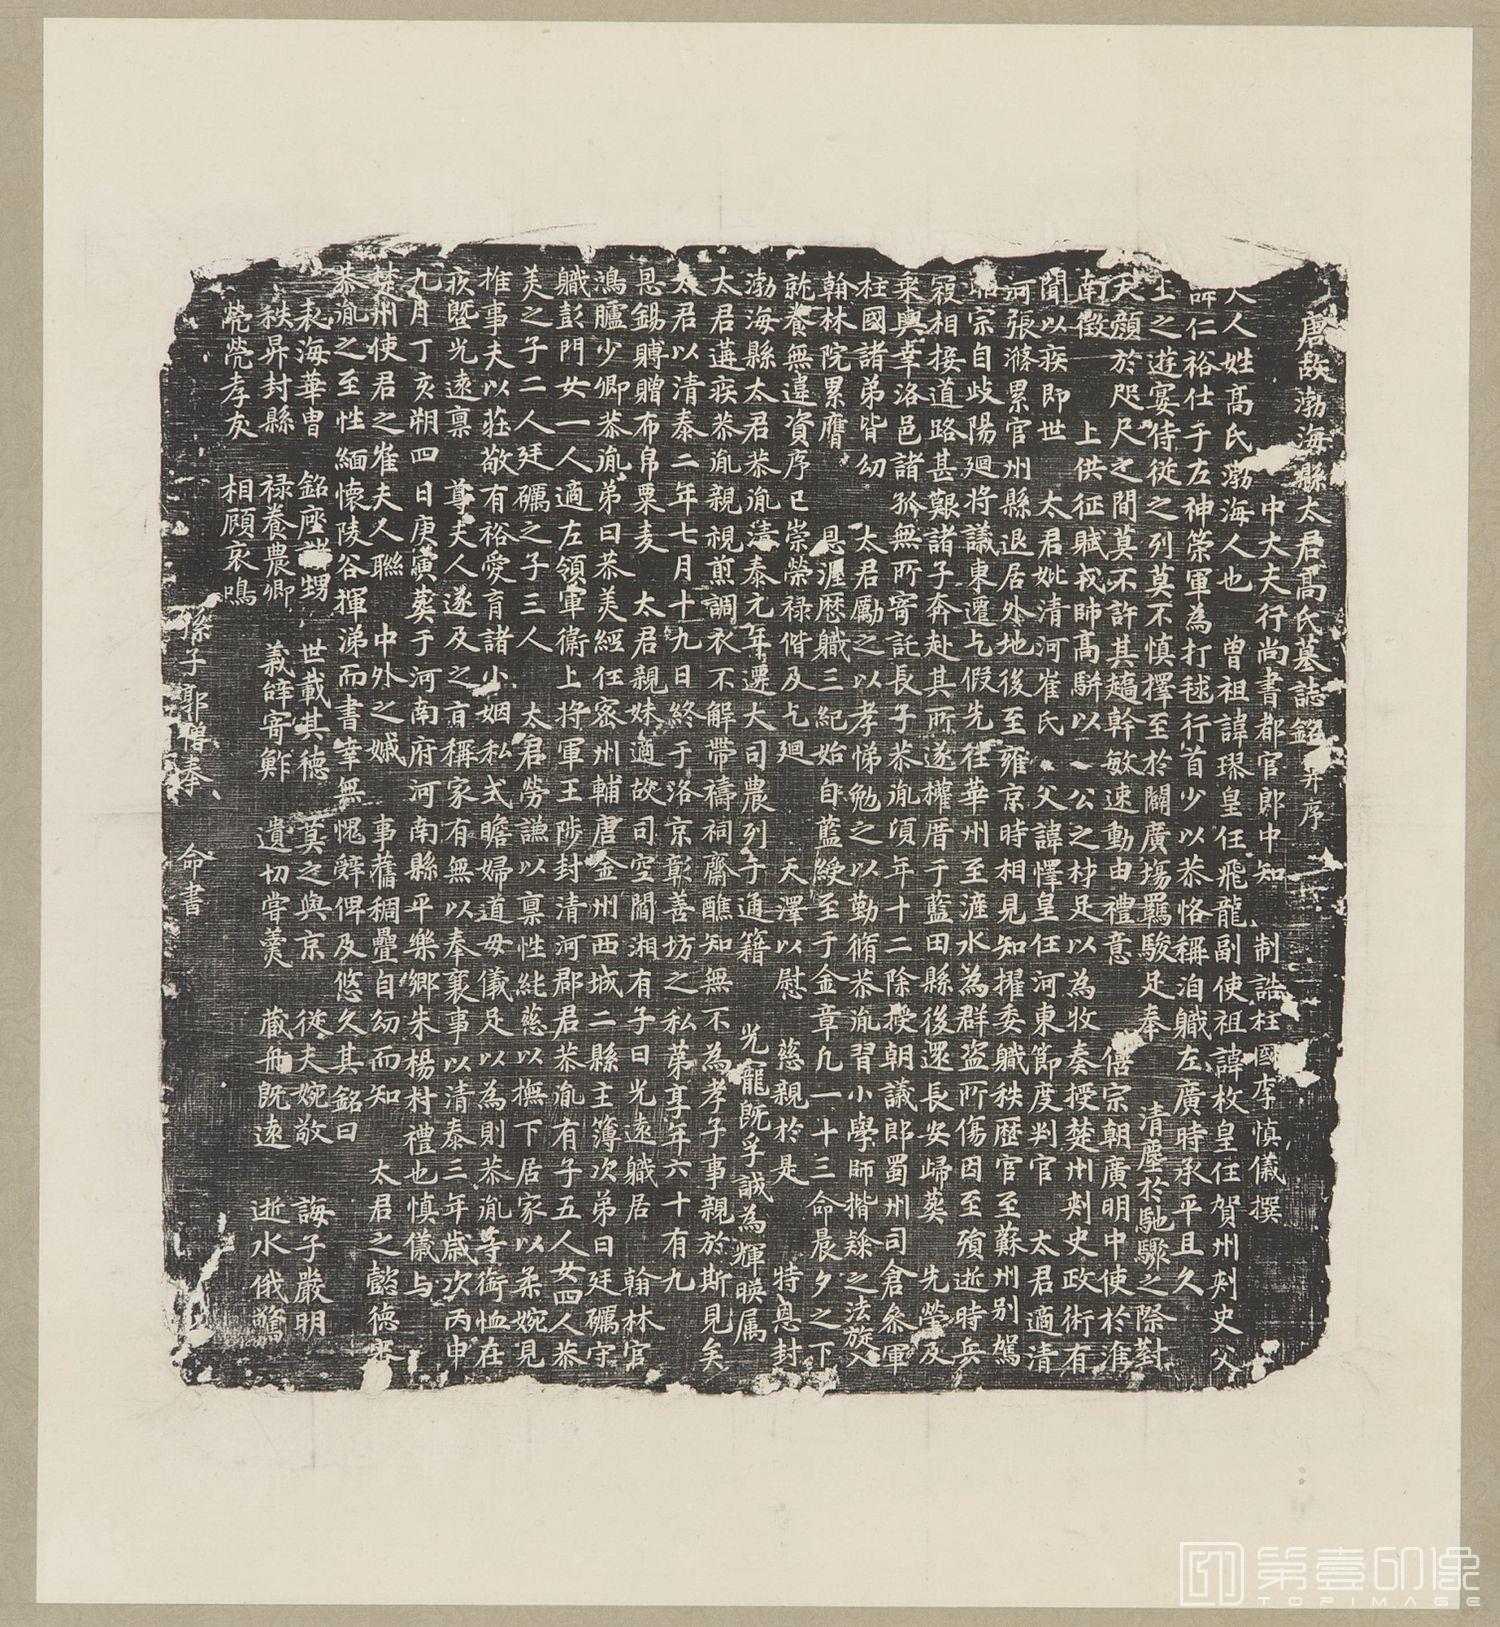 唐故渤海縣太君高氏墓誌銘并序
中大夫行尚書都官郎中知制誥柱國李慎儀撰
人姓高氏渤海人也曾祖諱璆皇任飛龍副使祖諱枚皇任賀州刺史父
諱仁裕仕于左神策軍為打毬行首少以恭恪稱洎職左廣時承平且久
上之遊宴侍從之列莫不慎擇至於闢廣塲羈駿足奉清塵於馳驟之際對
天顏於咫尺之間莫不許其趫幹敏速動由禮意僖宗朝廣明中使於淮
南徵上供征賦戎師高駢以公之材足以為牧奏授楚州刺史政術有
聞以疾即世太君妣清河崔氏父諱懌皇任河東節度判官太君適清
河張滌累官州縣退居外地後至雍京時相見知擢委職秩歷官至蘇州別駕
昭宗自歧陽廻將議東遷乞假先往華州至滻水為群盜所傷因至殞逝時兵
寇相接道路甚艱諸子奔赴其所遂權厝于藍田縣後還長安歸葬先塋及
乘輿幸洛邑諸孤無所寄託長子恭胤頃年十二除授朝議郎蜀州司倉參軍
柱國諸弟皆幼太君勵之以孝悌勉之以勤脩恭胤習小學師楷隸之法旋入
翰林院累膺恩渥歷職三紀始自藍綬至于金章凡一十三命晨夕之下
就養無違資序已崇榮祿偕及乞廻天澤以慰慈親於是特恩封
渤海縣太君恭胤清泰元年遷大司農列子通籍光寵既孚誠為輝暎属
太君遘疾恭胤親視煎調衣不解帶禱祠齋醮知無不為孝子事親於斯見矣
太君以清泰二年七月十九日終于洛京彰善坊之私第享年六十有九
恩錫賻贈布帛粟麦太君親妹適故司空閻湘有子曰光遠職居翰林官
鴻臚少卿恭胤弟曰恭美經任密州輔唐金州西城二縣主簿次弟曰廷礪守
職彭門女一人適左領軍衛上將軍王陟封清河郡君恭胤有子五人女四人恭
美之子二人廷礪之子三人太君勞謙以稟性純慈以撫下居家以柔婉見
推事夫以莊敬有裕愛育諸小姻私式瞻婦道母儀足以為則恭胤等銜恤在
疚曁光遠稟尊夫人遂及之言稱家有無以奉襄事以清泰三年歲次丙申
九月丁亥朔四日庚寅葬于河南府河南縣平樂鄉朱楊村禮也慎儀与
楚州使君之崔夫人聯中外之戚事舊稠疊自幼而知太君之懿德宋
恭胤之至性緬懷陵谷揮涕而書幸無愧辭俾及悠久其銘曰
表海華胄銘座甥世載其德莫之與京從夫婉敬誨子嚴明
秩昇封縣禄養農卿義辞寄鮓遺切甞羹藏舟既遠逝水俄驚
煢煢孝友相顧哀鳴
孫子鄂奉命書
第壹印像
TOPIMAGE